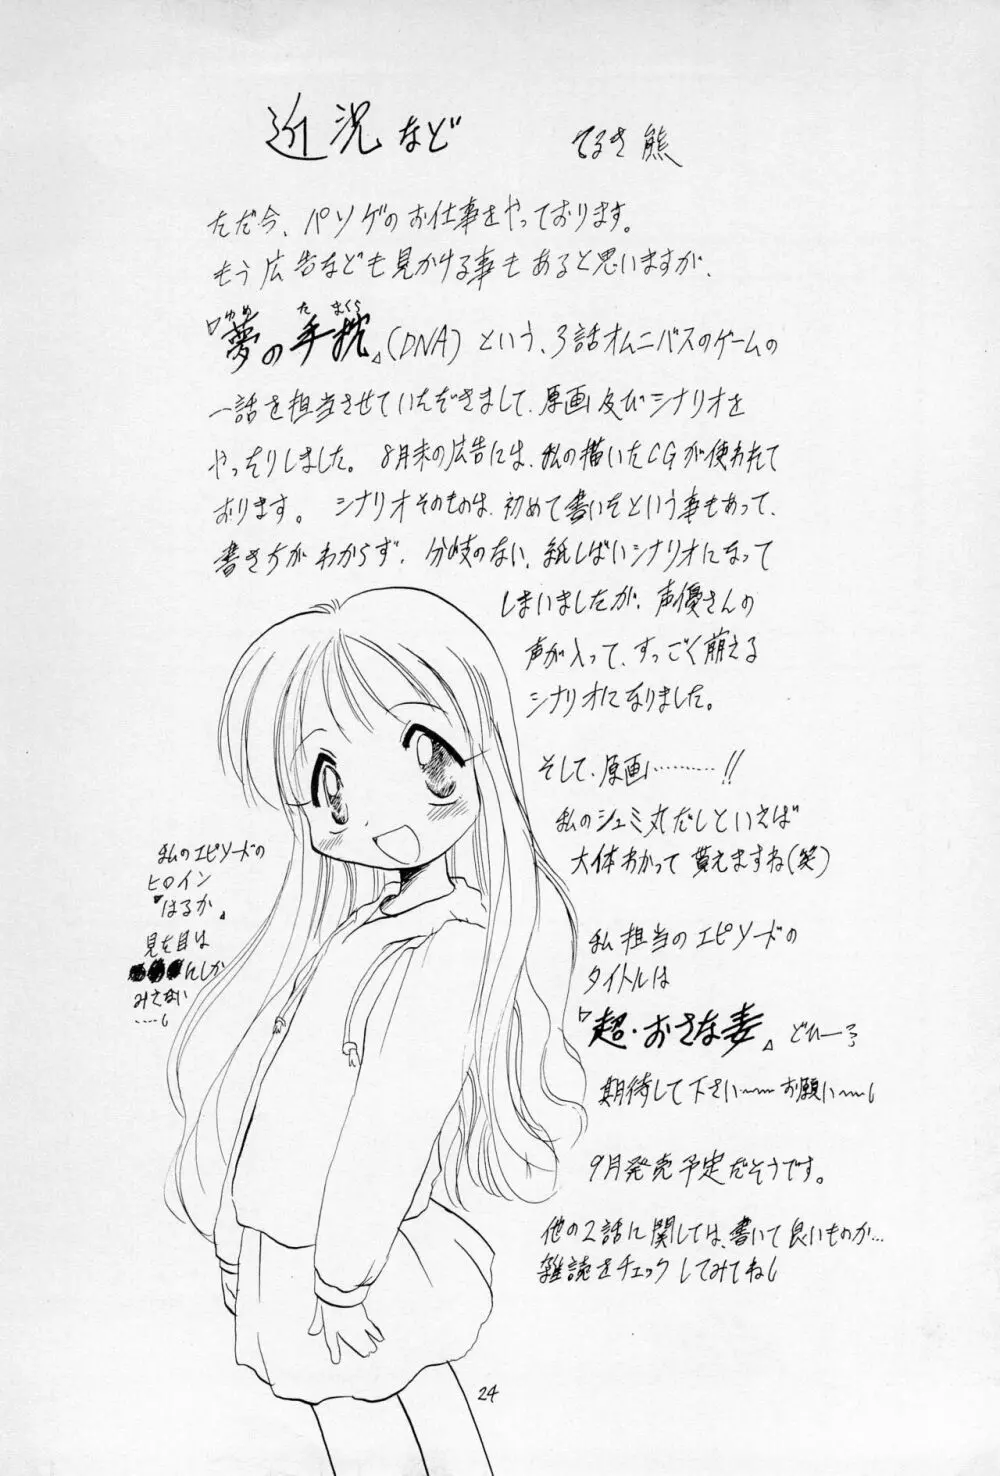 近況など
てるき熊
ただ今、パソゲのお仕事をやっております。
もう広告なども見かける事もあると思いますが、
『夢の手枕』(DNA)という、3話オムニバスのゲームの
ゆめ た まくら
一話を担当させていただきまして、原画及びシナリオを
やったりしました。8月末の広告には、私の描いたCGが使われて
おります。シナリオそのものは、初めて書いたという事もあって、
書き方がわからず、分岐のない、紙しばいシナリオになって
しまいましたが、声優さんの
声が入って、すっごく萌える
シナリオになりました。
そして、原画………!!
私のシュミ丸だしといえば
大体わかって貰えますね(笑)
私のエピソードの
ヒロイン
『はるか』
見た目は
にしか
みえない
……し
私担当のエピソードの
タイトルは
『超・おさな妻』どひーろ
期待して下さい〜〜お願い〜〜し
9月発売予定だそうです。
他の2話に関しては、書いて良いものか…
雑誌をチェックしてみてねし
24